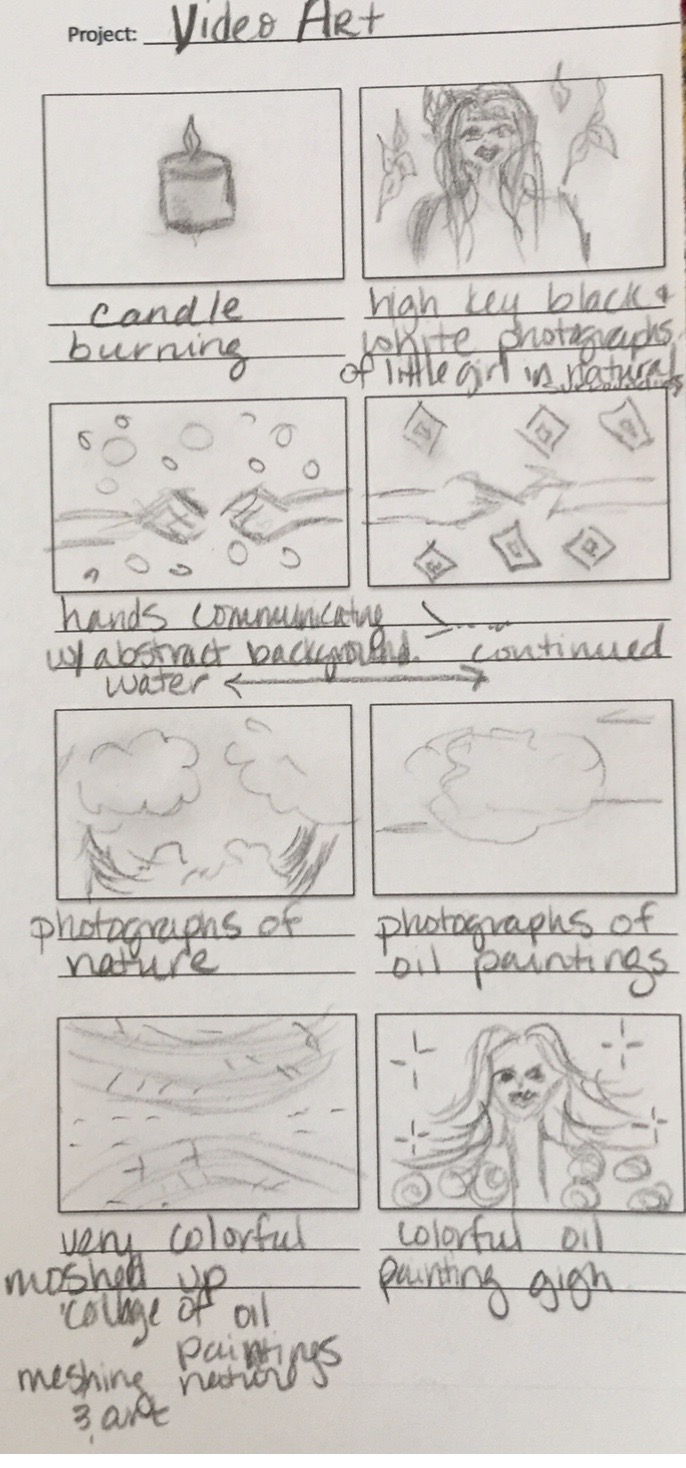 Project: Video Art
candle
burning
high key black &
white photographs
of little girl in natural
hands communicating
w/ abstract background.
continued
water
photographs of
nature
photographs of
oil paintings
very colorful
moshed up
collage of oil
paintings
meshing
& art
colorful oil
painting